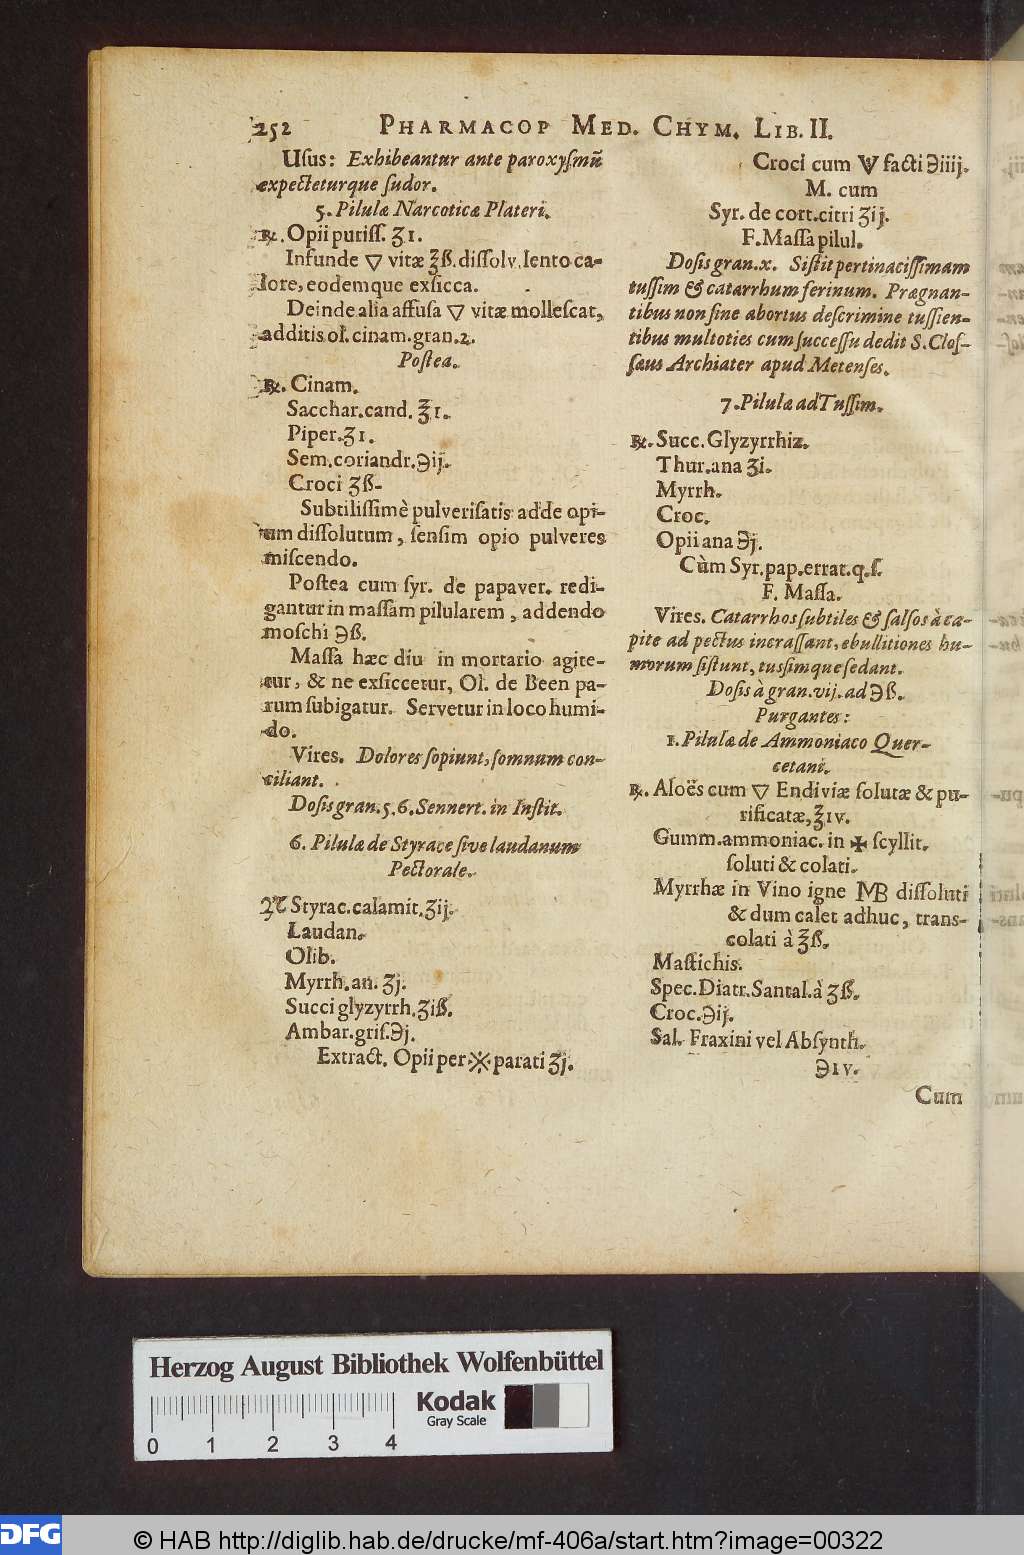 252 PHARMACOP MED. CHYM. LIB. II.
Uſus: Exhibeantur ante paroxyſmū
expecteturque ſudor.
5. Pilulæ Narcoticæ Plateri.
℞. Opii puriſſ. ʒ1.
Infunde ▽ vitæ ℥ß. diſſolv. lento ca-
lore, eodemque exſicca.
Deinde alia affuſa ▽ vitæ molleſcat,
additis ol. cinam. gran. 2.
Poſtea.
℞. Cinam.
Sacchar. cand. ℥1.
Piper. ʒ1.
Sem. coriandr. ℈ij.
Croci ʒß.
Subtiliſſimè pulveriſatis adde opi-
um diſſolutum, ſenſim opio pulveres
miſcendo.
Poſtea cum ſyr. de papaver. redi-
gantur in maſſam pilularem, addendo
moſchi ℈ß.
Maſſa hæc diu in mortario agite-
tur, & ne exſiccetur, Ol. de Been pa-
rum ſubigatur. Servetur in loco humi-
do.
Vires. Dolores ſopiunt, ſomnum con-
ciliant.
Doſis gran. 5. 6. Sennert. in Inſtit.
6. Pilulæ de Styrace ſive laudanum
Pectorale.
♃ Styrac. calamit. ʒij.
Laudan.
Olib.
Myrrh. an. ʒj.
Succi glyzyrrh. ʒiß.
Ambar. griſ. ℈j.
Extract. Opii per ※ parati ʒj.
Croci cum facti ℈iiij.
M. cum
Syr. de cort. citri ʒij.
F. Maſſa pilul.
Doſis gran. x. Siſtit pertinaciſſimam
tuſſim & catarrhum ferinum. Prægnan-
tibus non ſine abortus deſcrimine tuſſien-
tibus multoties cum ſucceſſu dedit S. Cloſ-
ſæus Archiater apud Metenſes.
7. Pilulæ ad Tuſſim.
℞. Succ. Glyzyrrhiz.
Thur. ana ʒi.
Myrrh.
Croc.
Opii ana ℈j.
Cùm Syr. pap. errat. q. ſ.
F. Maſſa.
Vires. Catarrhos ſubtiles & ſalſos à ca-
pite ad pectus incraſſant, ebullitiones hu-
morum ſiſtunt, tuſſimque ſedant.
Doſis à gran. vij. ad ℈ß.
Purgantes:
1. Pilulæ de Ammoniaco Quer-
cetani.
℞. Aloës cum ▽ Endiviæ ſolutæ & pu-
rificatæ, ℥ıv.
Gumm. ammoniac. in ✠ ſcyllit.
ſoluti & colati.
Myrrhæ in Vino igne MB diſſoluti
& dum calet adhuc, trans-
colati à ℥ß.
Maſtichis.
Spec. Diatr. Santal. à ʒß.
Croc. ℈ij.
Sal. Fraxini vel Abſynth.
℈ıv.
Cum
Herzog August Bibliothek Wolfenbüttel
0 1 2 3 4
Kodak
Gray Scale
DFG
© HAB http://diglib.hab.de/drucke/mf-406a/start.htm?image=00322